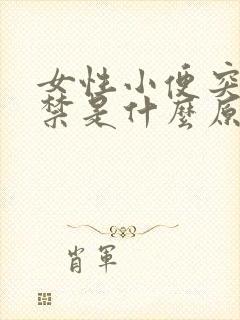 女性小便突
禁是什麼原
肖軍